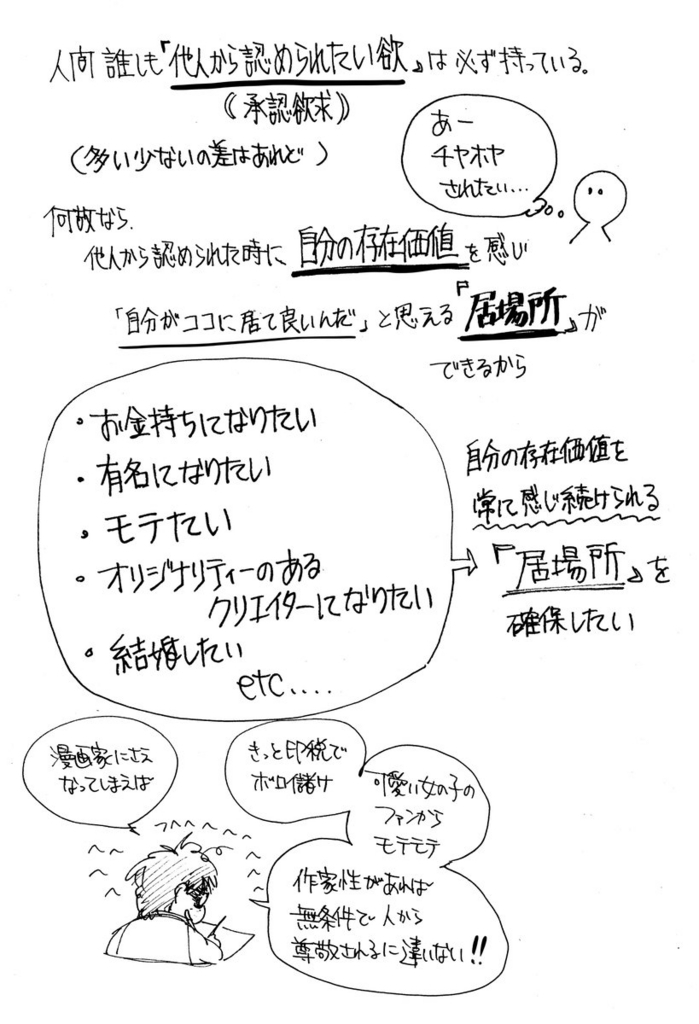 人間誰しも「他人から認められたい欲」は必ず持っている。
《承認欲求》
(多い少ないの差はあれど)
あー
チヤホヤ
されたい…
何故なら、
他人から認められた時に自分の存在価値を感じ
「自分がココに居て良いんだ」と思える『居場所』が
できるから
・お金持ちになりたい
・有名になりたい
・モテたい
・オリジナリティーのある
クリエイターになりたい
・結婚したい
etc....
自分の存在価値を
常に感じ続けられる
『居場所』を
確保したい
漫画家にさえ
なってしまえば
きっと印税で
ボロイ儲け
可愛い女の子の
ファンから
モテモテ
作家性があれば
無条件で人から
尊敬されるに違いない!!